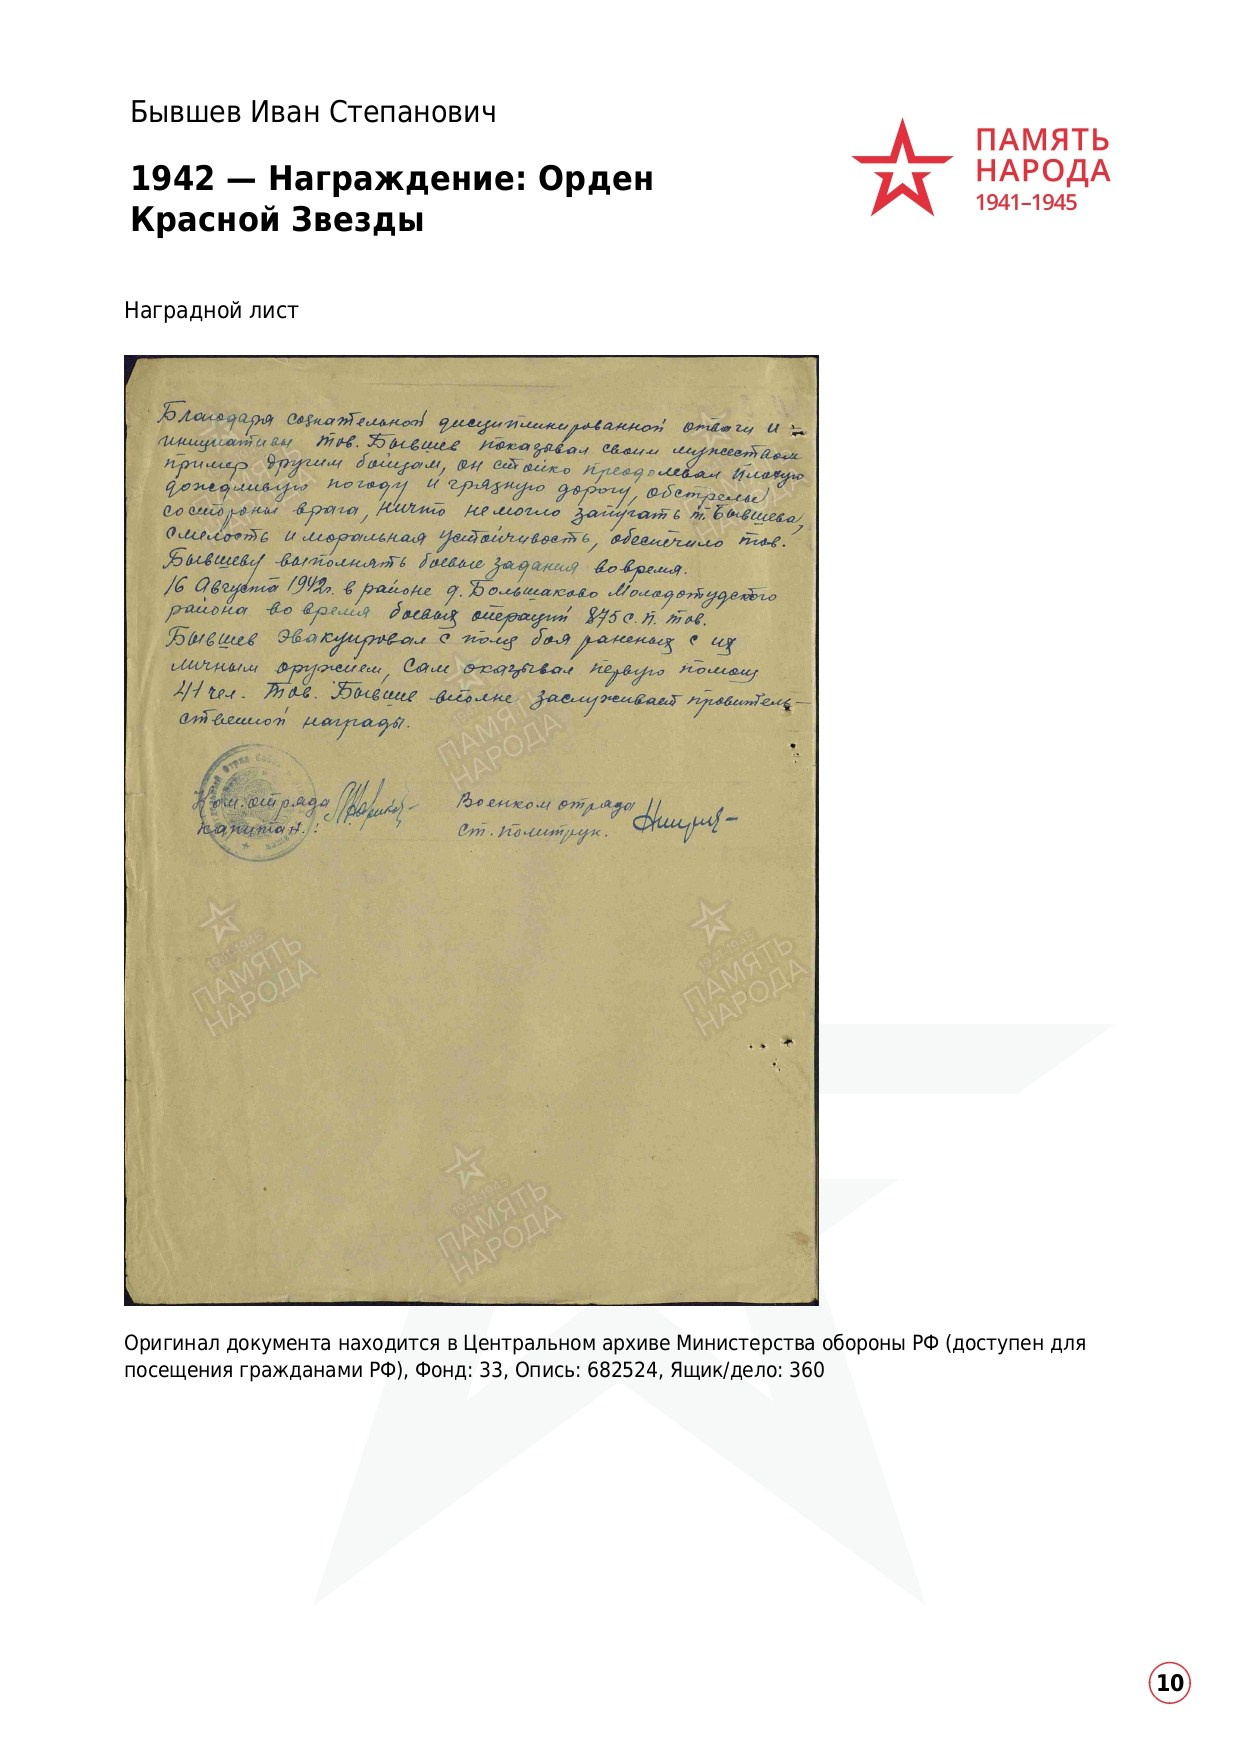 Бывшев Иван Степанович
ПАМЯТЬ
НАРОДА
1941–1945
1942 — Награждение: Орден
Красной Звезды
Наградной лист
Благодаря сознательной дисциплинированной отваги и
инициативы тов. Бывшев показывал своим мужеством
пример другим бойцам, он стойко преодолевал плохую
дождливую погоду и грязную дорогу, обстрелы
со стороны врага, ничто немогло запугать т. Бывшева,
смелость и моральная устойчивость, обеспечило тов.
Бывшеву выполнять боевые задания вовремя.
16 Августа 1942г. в районе д. Большаково Молодотудского
района во время боевых операций 875 с.п. тов.
Бывшев эвакуировал с поля боя раненых с их
личным оружием, сам оказывал первую помощ
41 чел. Тов. Бывше вполне заслуживает правитель-
ственной награды.
Ком. отряда
Капитан:
Военком отряда
ст. политрук.
ПАМЯТЬ
НАРОДА
1941-1945
ПАМЯТЬ
НАРОДА
1941-1945
ПАМЯТЬ
НАРОДА
1941-1945
ПАМЯТЬ
НАРОДА
Оригинал документа находится в Центральном архиве Министерства обороны РФ (доступен для
посещения гражданами РФ), Фонд: 33, Опись: 682524, Ящик/дело: 360
10